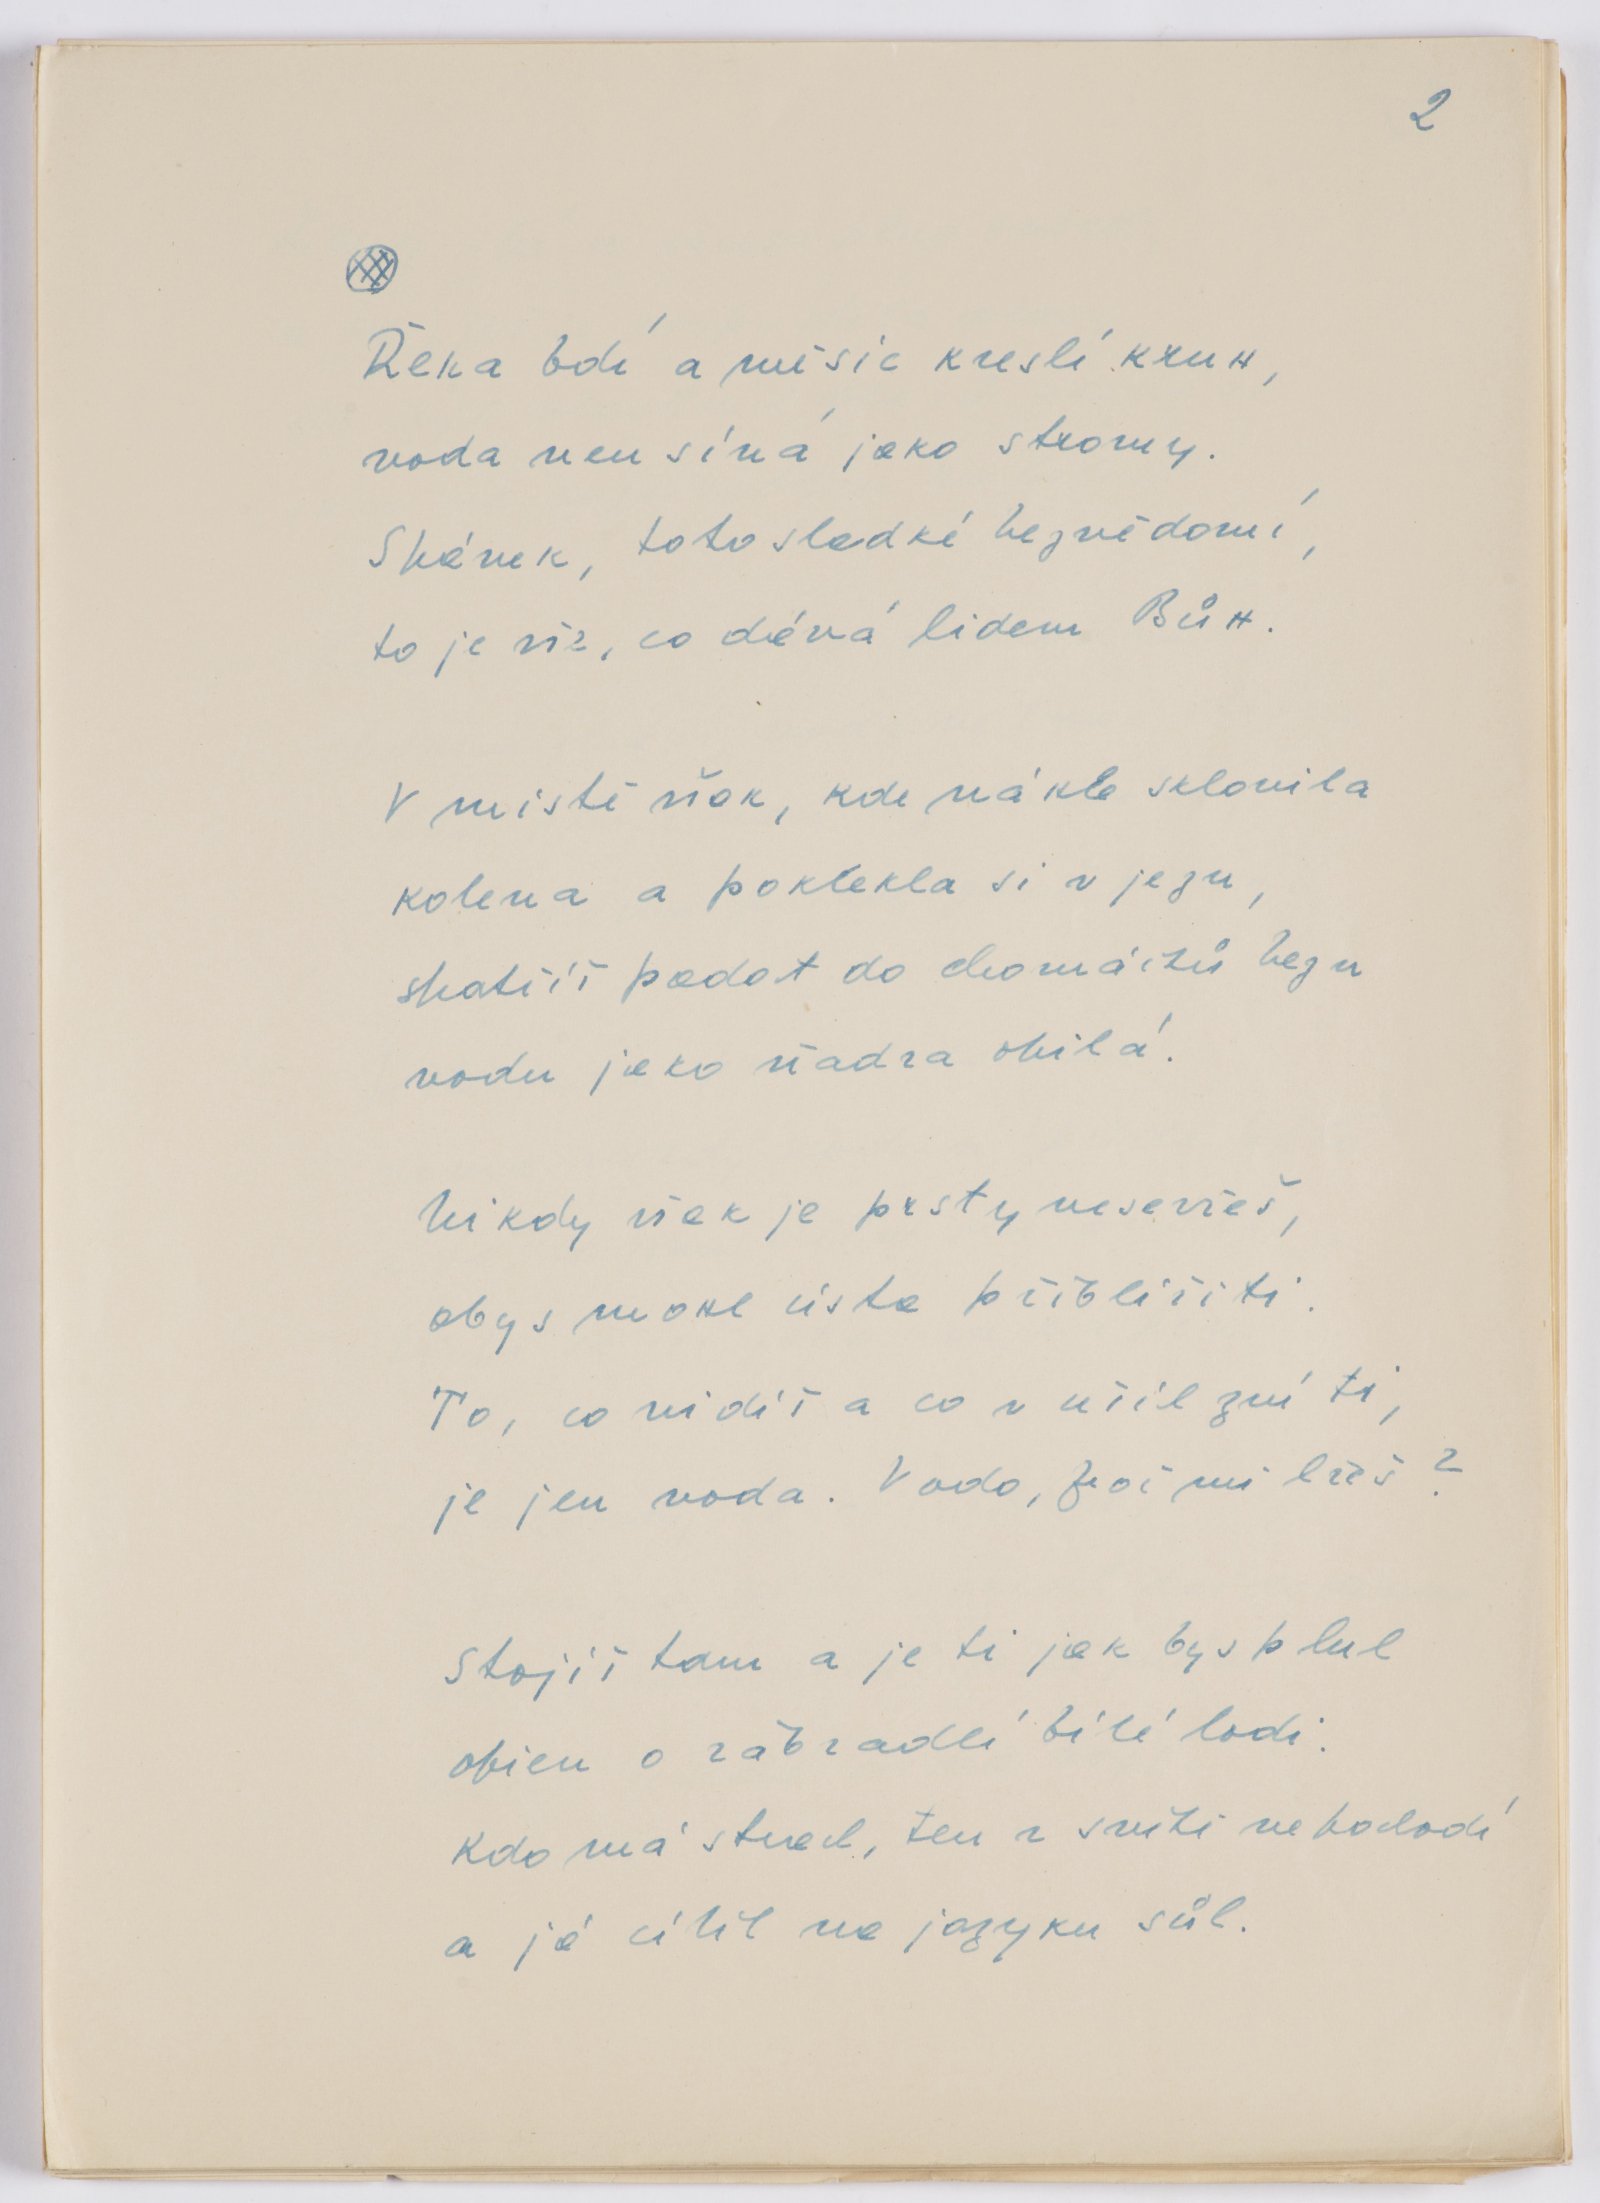 2
Řeka bdí a měsíc kreslí kruh,
voda neusíná jako stromy.
Spánek, toto sladké bezvědomí,
to je vše, co dává lidem Bůh.
V místě však, kde náhle sklonila
kolena a poklekla si v jezu,
spatříš padat do chomáčků bezu
vodu jako ňadra opilá.
Nikdy však je prsty nesevřeš,
abys mohl ústa přiblížiti.
To, co vidíš a co v uších zní ti,
je jen voda. Vodo, proč mi lžeš?
Stojíš tam a je ti jak bys plul
opřen o zábradlí bílé lodi.
Kdo má strach, ten
a já cítil na jazyku sůl.